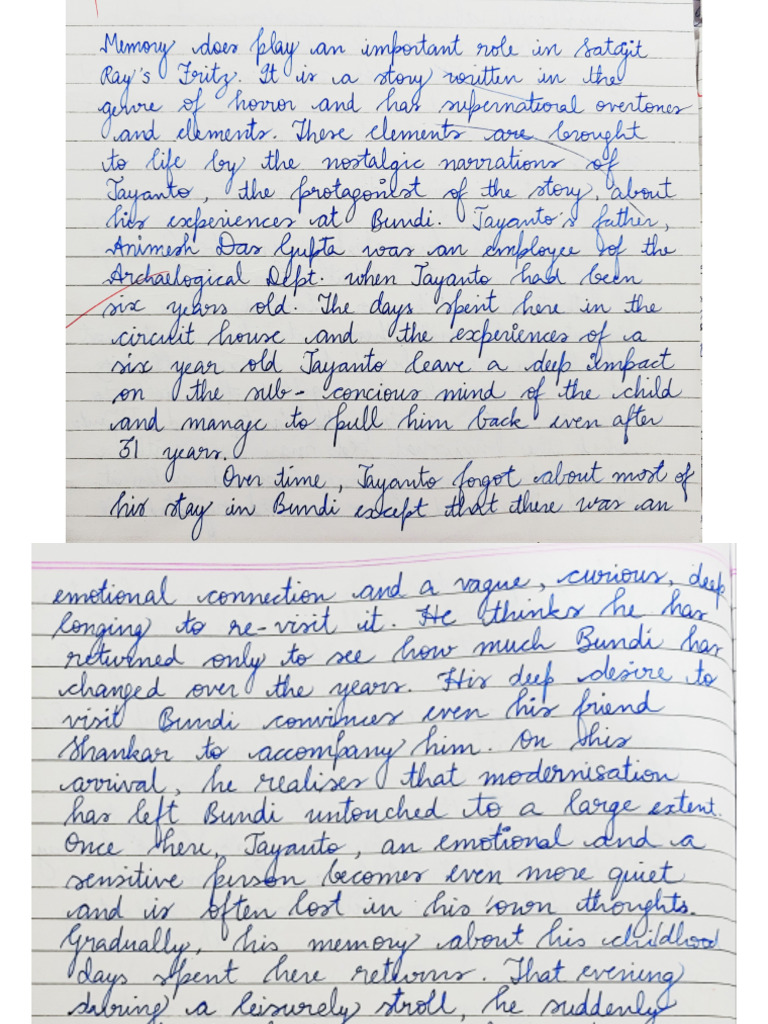 Memory does play an important role in Satajit
Ray's Fritz. It is a story written in the
genre of horror and has supernational overtones
and elements. These elements are brought
to life by the nostalgic narrations of
Jayanto, the protagonist of the story, about
his experiences at Bundi. Jayanto's father,
Animesh Das Gupta was an employee of the
Archaelogical Dept. when Jayanto had been
six years old. The days spent here in the
circuit house and the experiences of a
six year old Jayanto leave a deep impact
on the sub-concious mind of the child
and manage to pull him back even after
31 years.
Over time, Jayanto forgot about most of
his stay in Bundi except that there was an
emotional connection and a vague, curious, deep
longing to re-visit it. He thinks he has
returned only to see how much Bundi has
changed over the years. His deep desire to
visit Bundi convinces even his friend
Shankar to accompany him. On this
arrival, he realises that modernisation
has left Bundi untouched to a large extent.
Once here, Jayanto, an emotional and a
sensitive person becomes even more quiet
and is often lost in his own thoughts.
Gradually, his memory about his childhood
days spent here returns. That evening
during a leisurely stroll, he suddenly